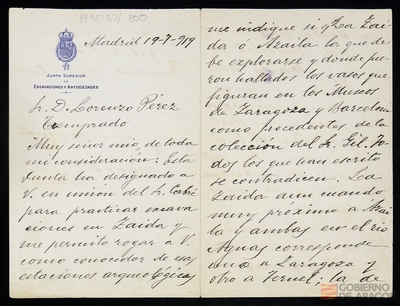 Madrid 19-7-919
JUNTA SUPERIOR
DE
EXCAVACIONES Y ANTIGÜEDADES
Sr. D. Lorenzo Pérez
Temprado
Muy señor mío, de toda
mi consideración: Esta
Junta ha designado a
V. en unión del Sr. Cabré
para practicar excava
ciones en Zaida y
me permito rogar a V.
como conocedor de esas
estaciones arqueológicas
me indique si es La Zai
da ó Azaila lo que de
be explorarse y donde fue
ron hallados los vasos que
figuran en los Museos
de Zaragoza y Barcelona
como procedentes de la
colección del Sr. Gil. To
dos los que han escrito
se contradicen. La
Zaida aun cuando
muy próximo a Azai
la y ambas en el río
Aguas corresponde
uno a Zaragoza y
otro a Teruel; la de
GOBIERNO
DE ARAGON